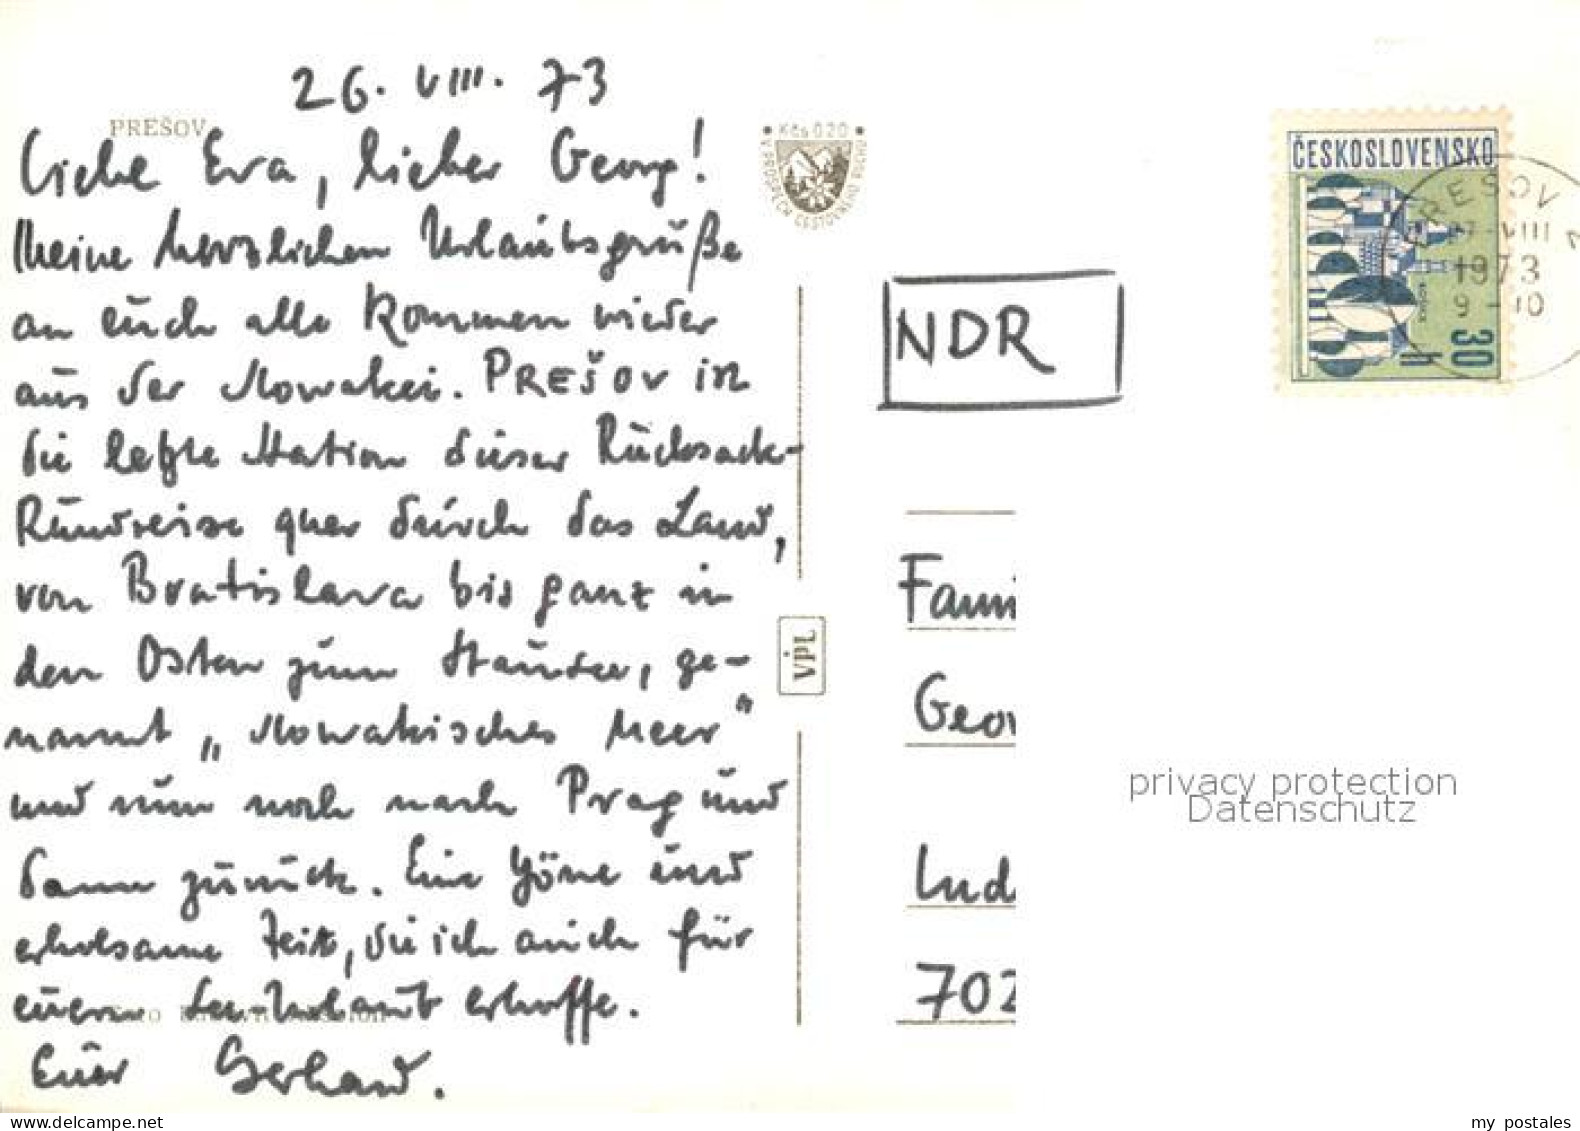 26. VIII. 73
PREŠOV
Liebe Eva, lieber Georg!
Meine herzlichen Urlaubsgrüße
an euch alle kommen wieder
aus der Slowakei. PREŠOV ist
die letzte Station dieser Rucksack-
Rundreise quer durch das Land,
von Bratislava bis ganz in
den Osten zum Stausee, ge-
nannt „Slowakisches Meer"
und nun noch nach Prag und
dann zurück. Eine schöne und
erholsame Zeit, die ich auch für
euern Urlaub erhoffe.
Euer Gerhard.
Kčs 0.20
VPL
NDR
ČESKOSLOVENSKO
30
h
PREŠOV
27-VIII
1973
9-10
Fami
Geor
Lud
702
privacy protection
Datenschutz
delcampe.net
my postales